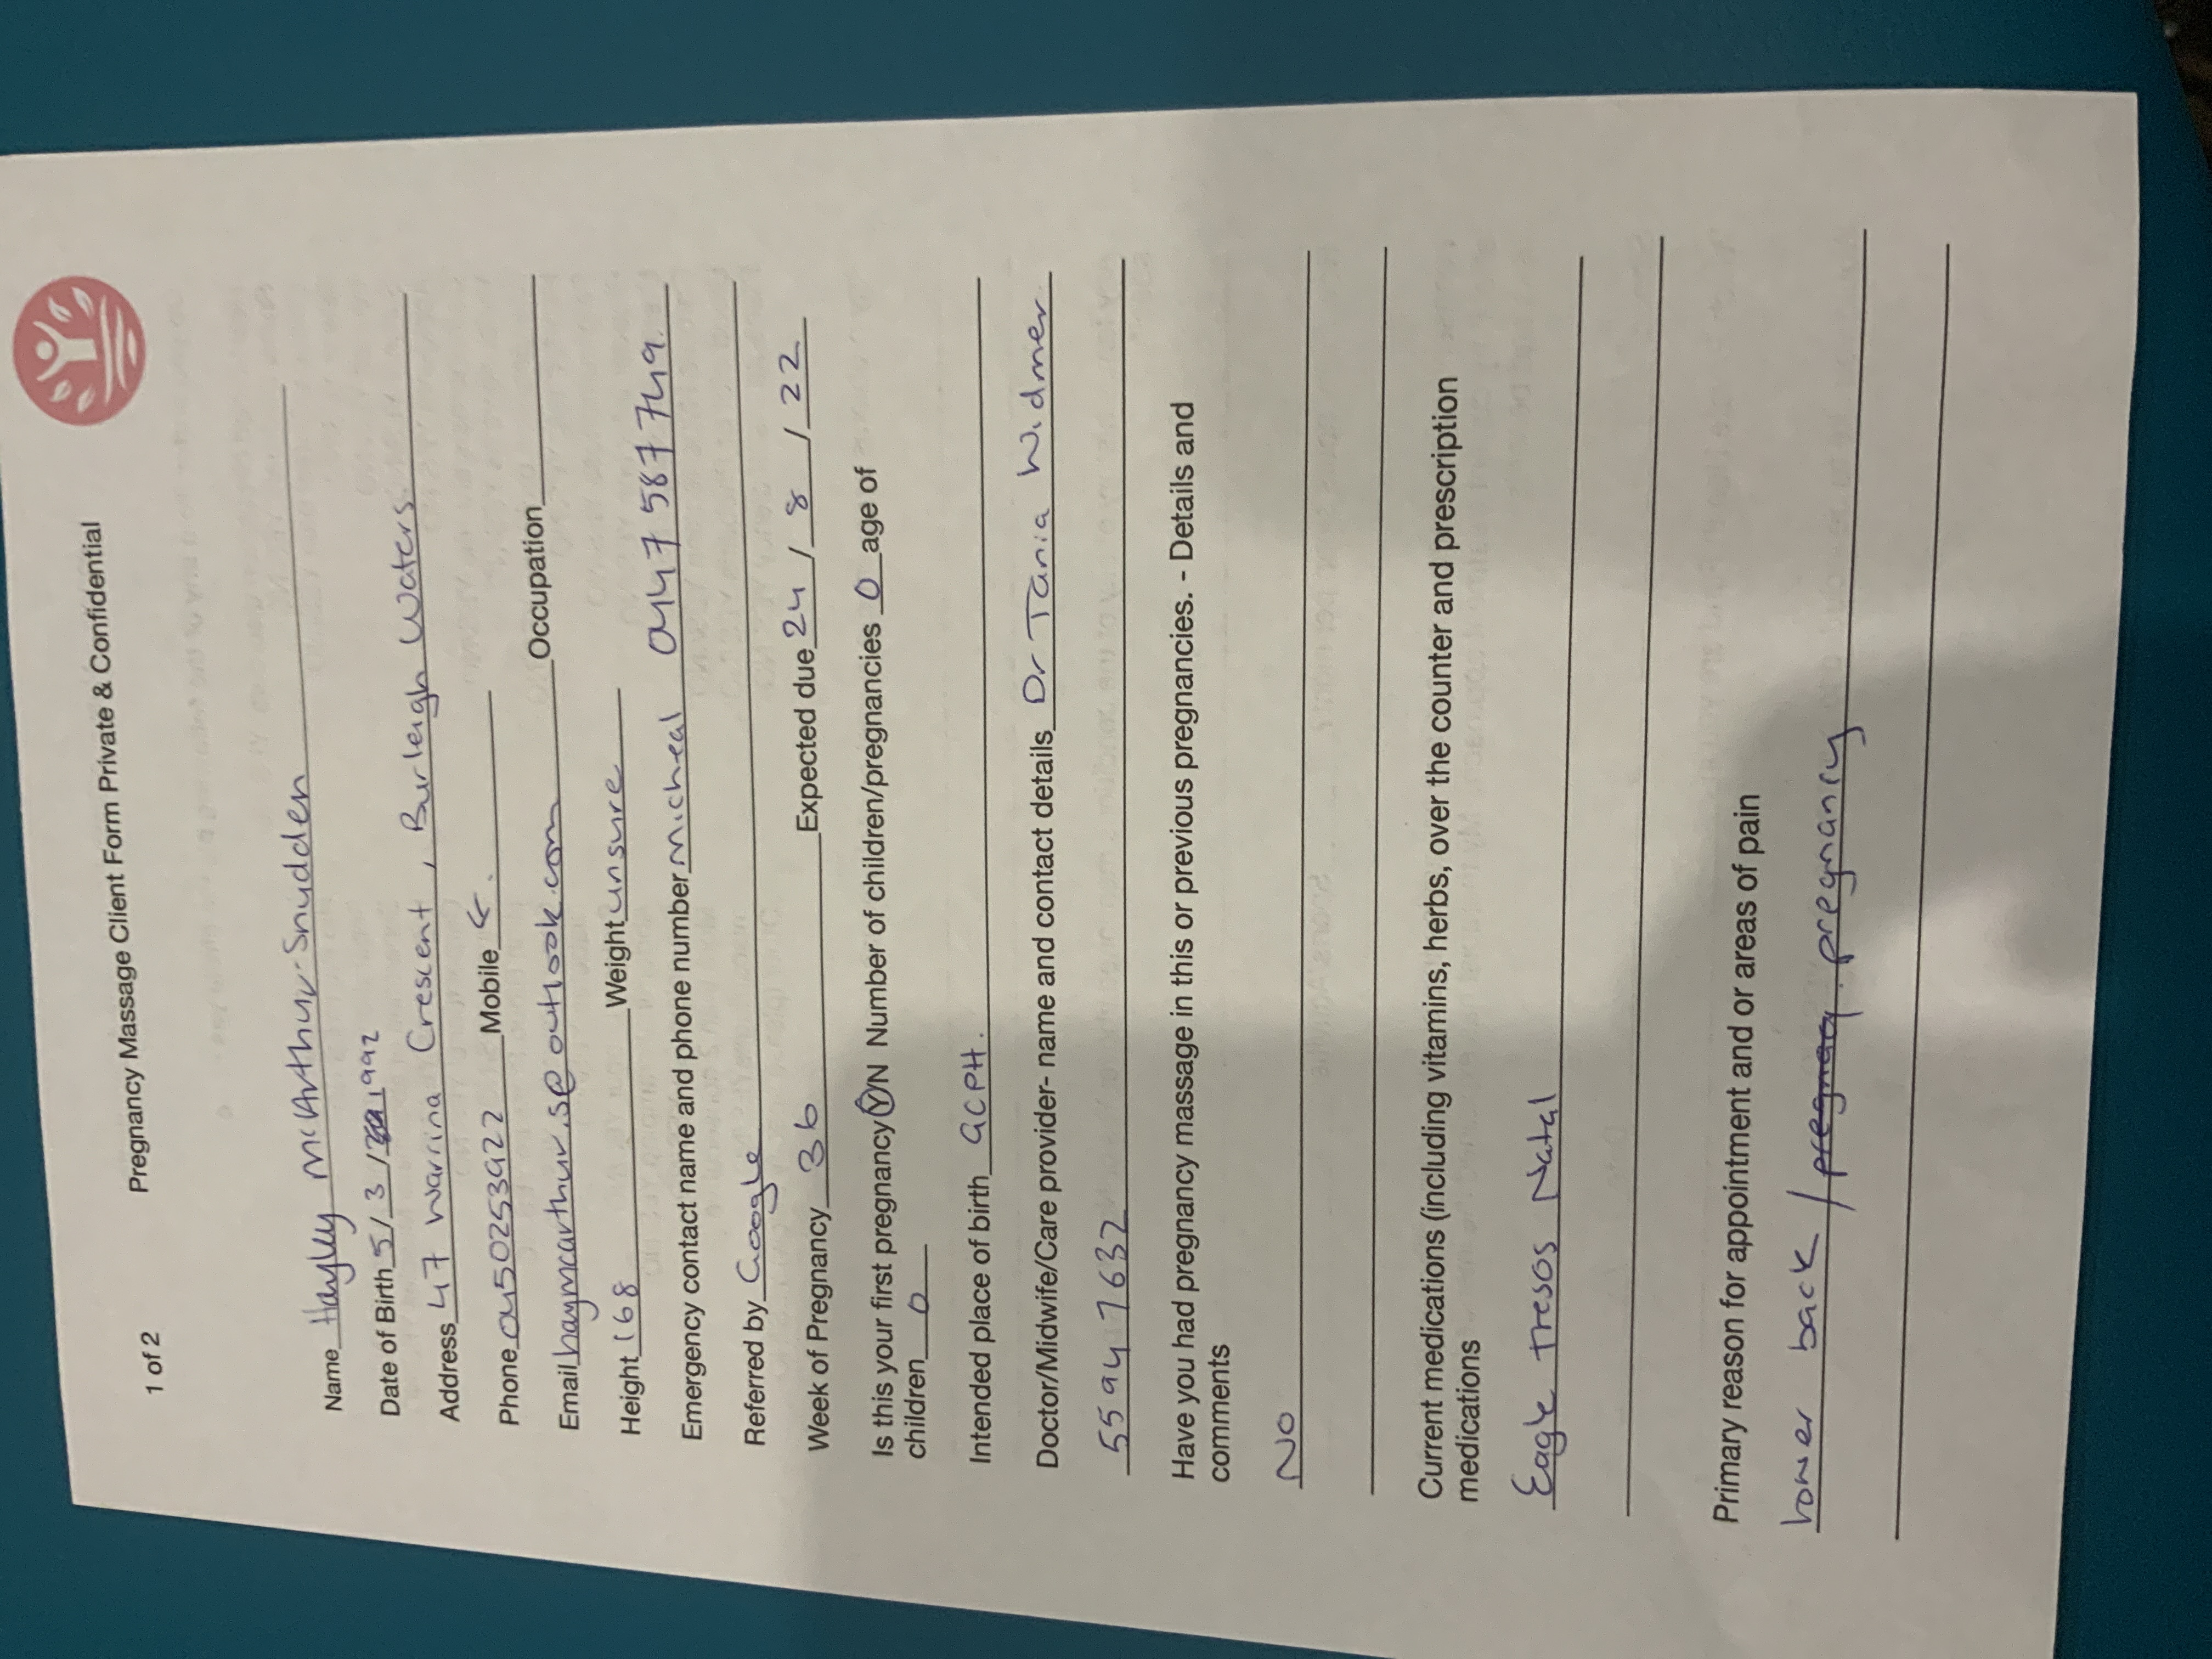 1 of 2 Pregnancy Massage Client Form Private & Confidential
Name Hayley McArthur-Snudden
Date of Birth 5/3/1992
Address 47 Warrina Crescent, Burleigh Waters
Phone 0450253922 Mobile ←.
Email haymcarthur.s@outlook.com Occupation
Height 168 Weight unsure
Emergency contact name and phone number micheal 0447 587 749
Referred by Google
Week of Pregnancy 36 Expected due 24 / 8 / 22
Is this your first pregnancy Y/N Number of children/pregnancies 0 age of
children 0
Intended place of birth GCPH.
Doctor/Midwife/Care provider- name and contact details Dr Tania Widmer
5594 7632
Have you had pregnancy massage in this or previous pregnancies. - Details and
comments
NO
Current medications (including vitamins, herbs, over the counter and prescription
medications
Eagle Tresos Natal
Primary reason for appointment and or areas of pain
lower back / pregnancy